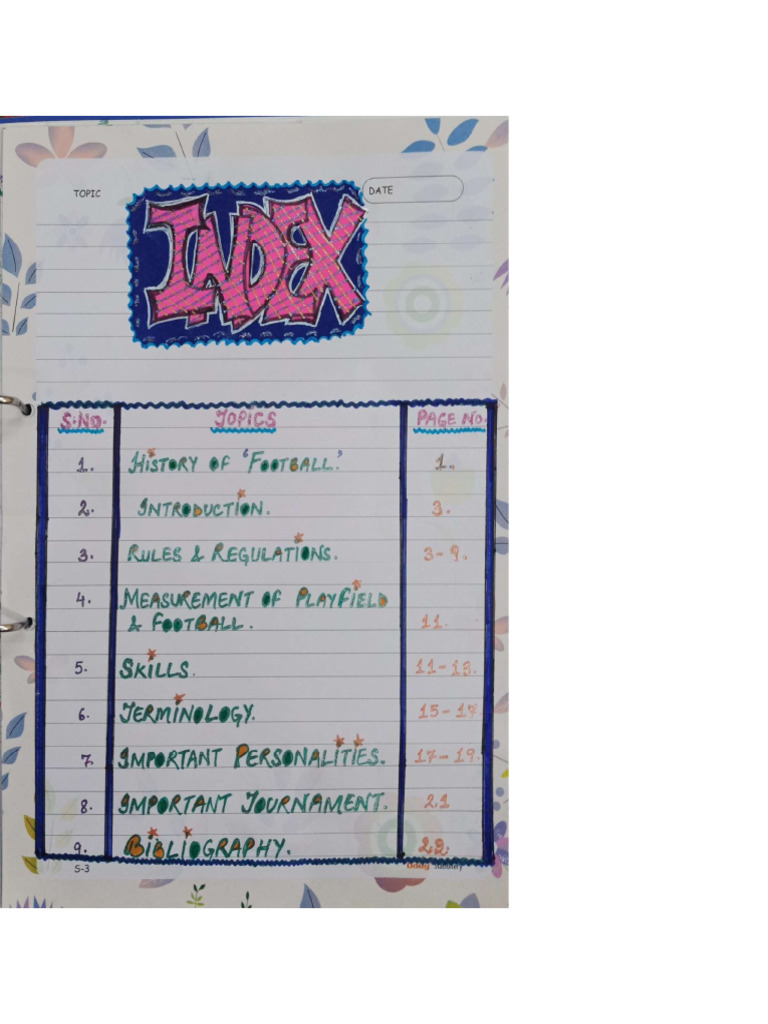 TOPIC
DATE
INDEX
S.NO. TOPICS PAGE NO.
1. HISTORY OF 'FOOTBALL.' 1.
2. INTRODUCTION. 3.
3. RULES & REGULATIONS. 3-9.
4. MEASUREMENT OF PLAYFIELD
& FOOTBALL. 11.
5. SKILLS. 11-13.
6. TERMINOLOGY. 15-17
7. IMPORTANT PERSONALITIES. 17-19.
8. IMPORTANT TOURNAMENT. 21
9. BIBLIOGRAPHY. 22.
S-3 Oddy